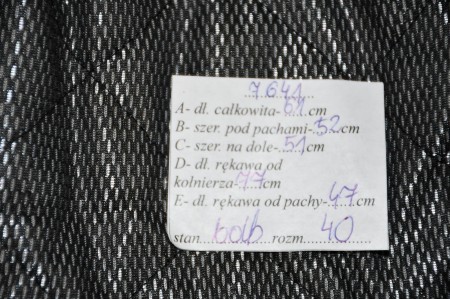 7641
A- dł. całkowita-61cm
B- szer. pod pachami-52cm
C- szer. na dole-51cm
D- dł. rękawa od
kołnierza-77cm
E- dł. rękawa od pachy-47cm
stan...bdb..rozm....40